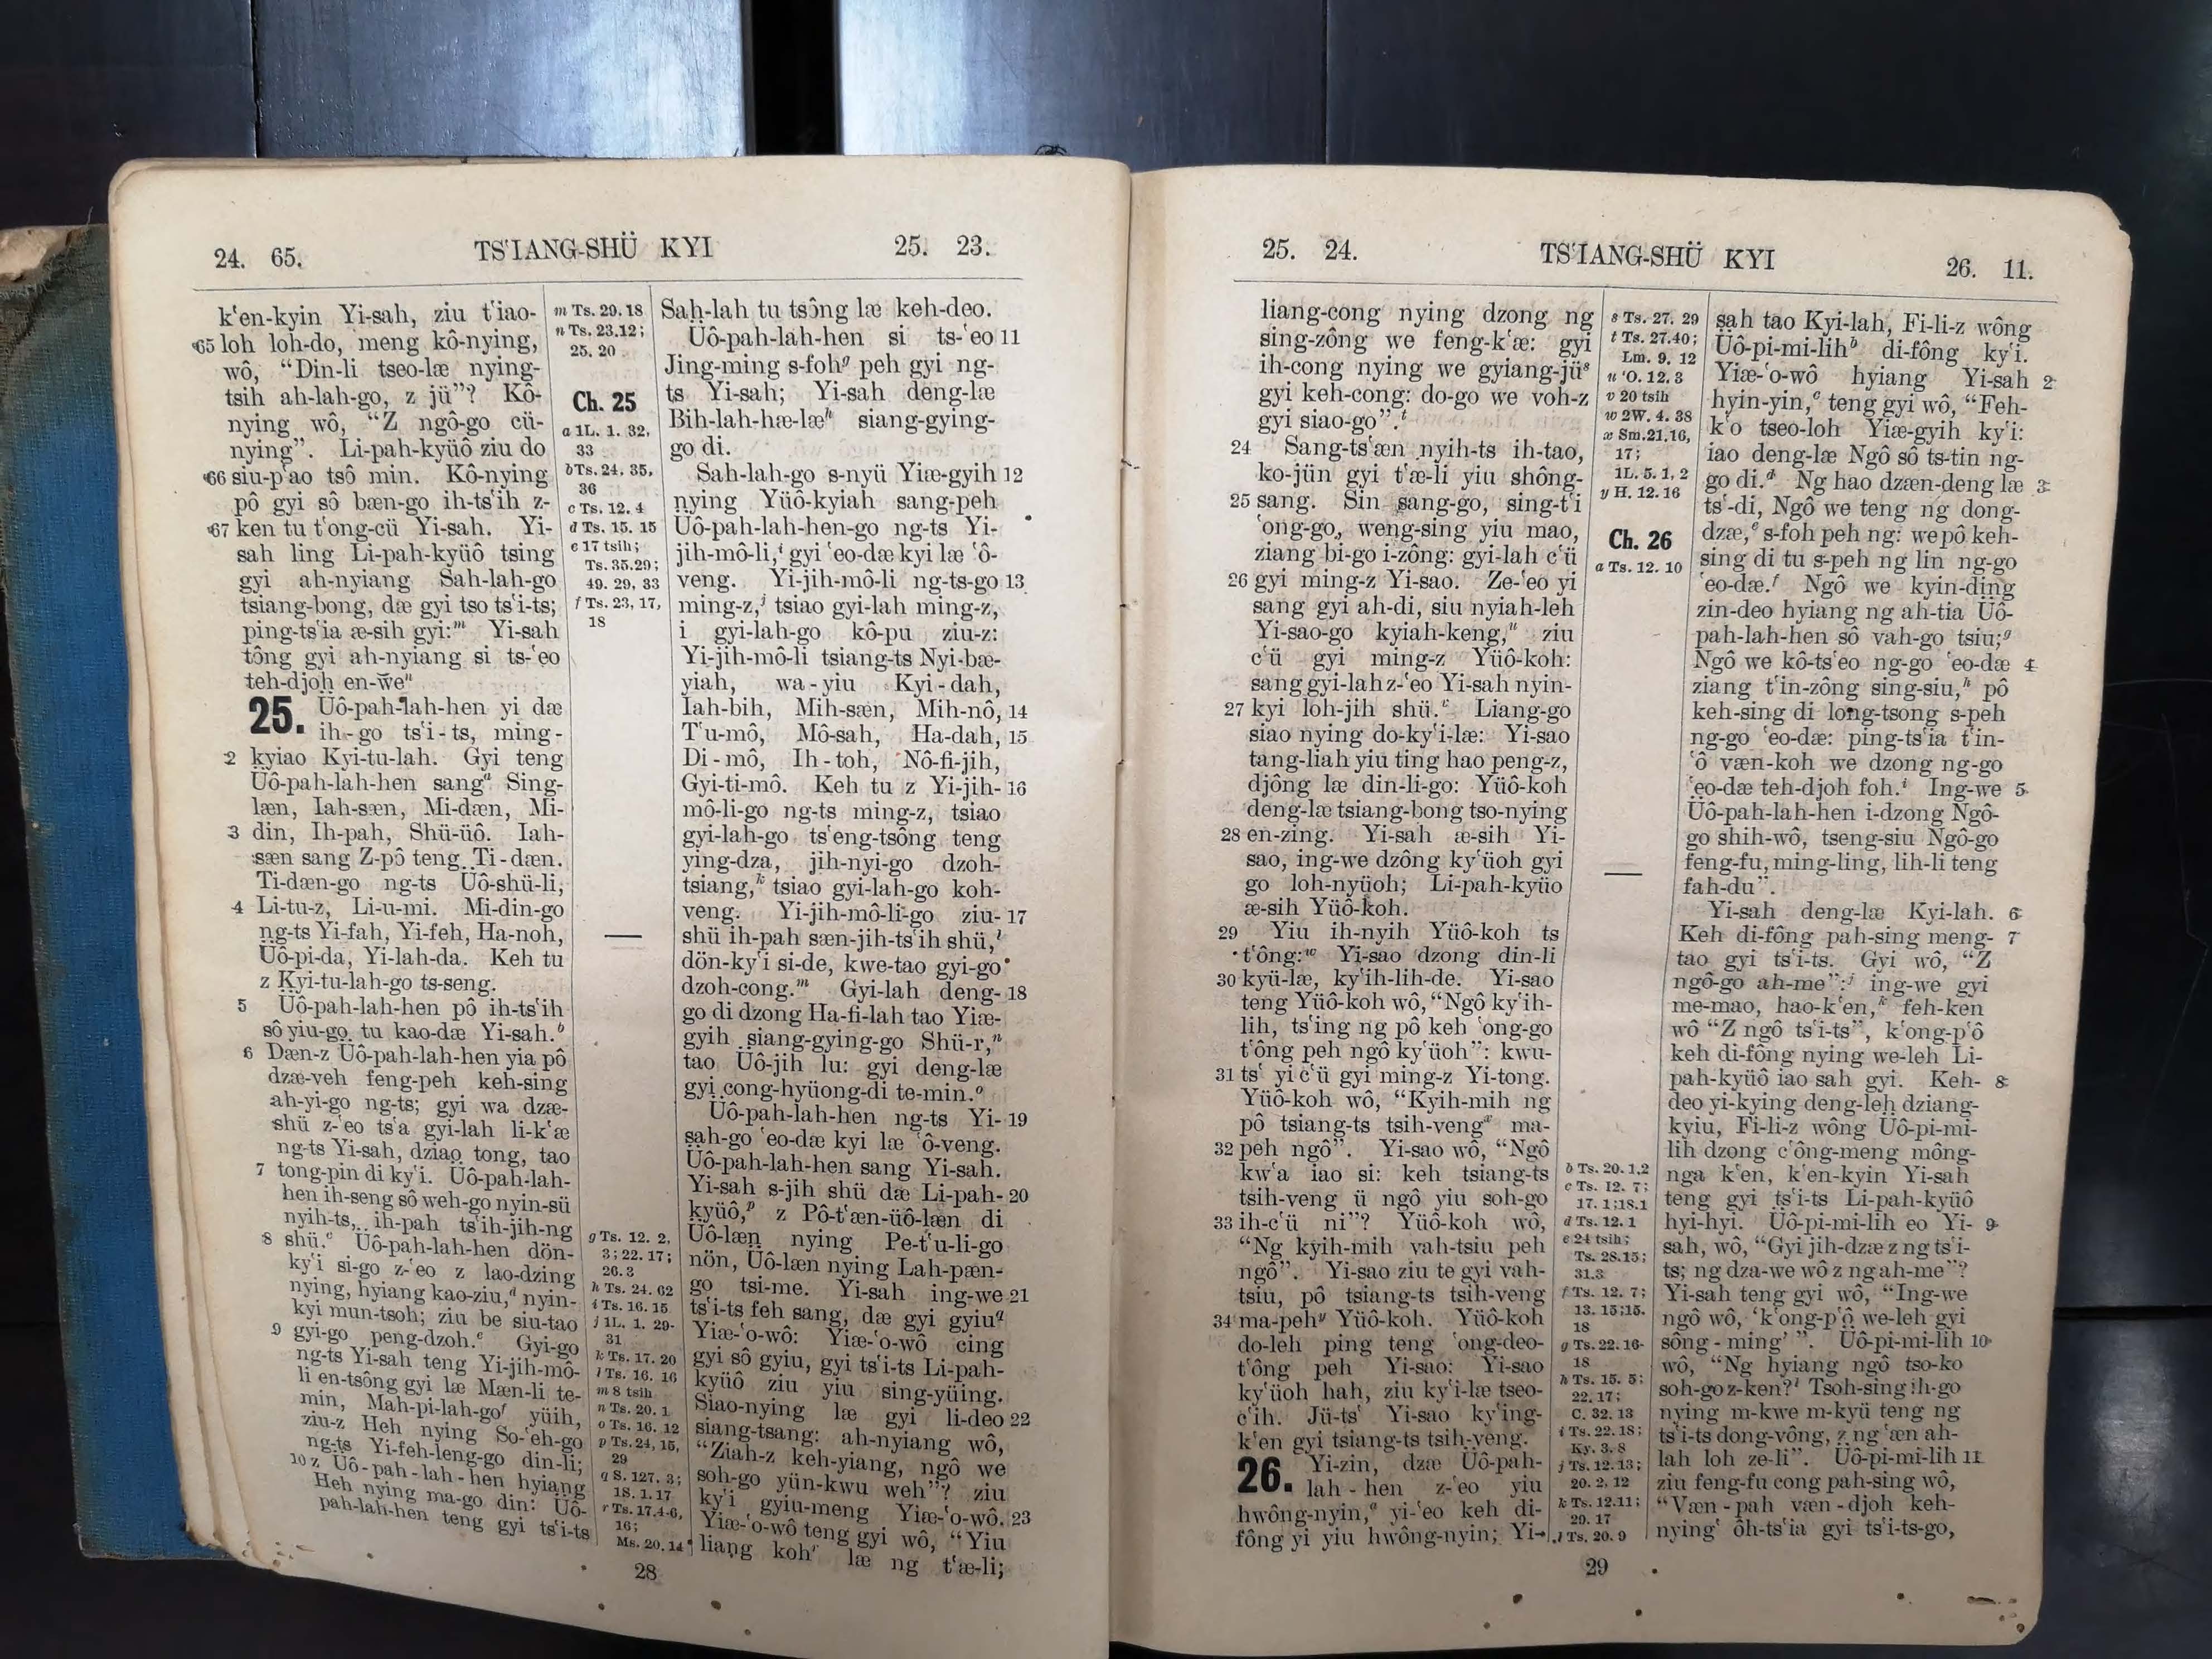 24. 65.
TSʻIANG-SHÜ KYI
25. 23.
kʻen-kyin Yi-sah, ziu tʻiao-
65 loh loh-do, meng kô-nying,
wô, “Din-li tseo-læ nying-
tsih ah-lah-go, z jü”? Kô-
nying wô, “Z ngô-go cü-
nying”. Li-pah-kyüô ziu do
66 siu-pʻao tsô min. Kô-nying
pô gyi sô bæn-go ih-tsʻih z-
67 ken tu tʻong-cü Yi-sah. Yi-
sah ling Li-pah-kyüô tsing
gyi ah-nyiang Sah-lah-go
tsiang-bong, dæ gyi tso tsʻi-ts;
ping-tsʻia æ-sih gyi:ᵐ Yi-sah
tông gyi ah-nyiang si ts-ʻeo
teh-djoh en-weⁿ
25. Üô-pah-lah-hen yi dæ
ih-go tsʻi-ts, ming-
2 kyiao Kyi-tu-lah. Gyi teng
Üô-pah-lah-hen sangᵃ Sing-
læn, Iah-sæn, Mi-dæn, Mi-
3 din, Ih-pah, Shü-üô. Iah-
sæn sang Z-pô teng Ti-dæn.
Ti-dæn-go ng-ts Üô-shü-li,
4 Li-tu-z, Li-u-mi. Mi-din-go
ng-ts Yi-fah, Yi-feh, Ha-noh,
Üô-pi-da, Yi-lah-da. Keh tu
z Kyi-tu-lah-go ts-seng.
5 Üô-pah-lah-hen pô ih-tsʻih
sô yiu-go tu kao-dæ Yi-sah.ᵇ
6 Dæn-z Üô-pah-lah-hen yia pô
dzæ-veh feng-peh keh-sing
ah-yi-go ng-ts; gyi wa dzæ-
shü z-ʻeo tsʻa gyi-lah li-kʻæ
ng-ts Yi-sah, dziao tong, tao
7 tong-pin di kyʻi. Üô-pah-lah-
hen ih-seng sô weh-go nyin-sü
nyih-ts, ih-pah tsʻih-jih-ng
8 shü.ᶜ Üô-pah-lah-hen dön-
kyʻi si-go z-ʻeo z lao-dzing
nying, hyiang kao-ziu,ᵈ nyin-
kyi mun-tsoh; ziu be siu-tao
9 gyi-go peng-dzoh.ᵉ Gyi-go
ng-ts Yi-sah teng Yi-jih-mô-
li en-tsông gyi læ Mæn-li te-
min, Mah-pi-lah-goᶠ yüih,
ziu-z Heh nying So-ʻeh-go
ng-ts Yi-feh-leng-go din-li;
10 z Üô-pah-lah-hen hyiang
Heh nying ma-go din: Üô-
pah-lah-hen teng gyi tsʻi-ts
m Ts. 29. 18
n Ts. 23.12;
25. 20
Ch. 25
a 1L. 1. 32,
33
b Ts. 24. 35,
36
c Ts. 12. 4
d Ts. 15. 15
e 17 tsih;
Ts. 35.29;
49. 29, 33
f Ts. 23, 17,
18
g Ts. 12. 2,
3; 22. 17;
26.3
h Ts. 24. 62
i Ts. 16. 15
j 1L. 1. 29-
31
k Ts. 17. 20
l Ts. 16. 16
m 8 tsih
n Ts. 20. 1
o Ts. 16. 12
p Ts. 24, 15,
29
q S. 127. 3;
1S. 1. 17
r Ts. 17.4-6,
16;
Ms. 20. 14
Sah-lah tu tsông læ keh-deo.
Üô-pah-lah-hen si ts-ʻeo 11
Jing-ming s-fohᵍ peh gyi ng-
ts Yi-sah; Yi-sah deng-læ
Bih-lah-hæ-læʰ siang-gying-
go di.
Sah-lah-go s-nyü Yiæ-gyih 12
nying Yüô-kyiah sang-peh
Üô-pah-lah-hen-go ng-ts Yi-
jih-mô-li,ⁱ gyi ʻeo-dæ kyi læ ʻô-
veng. Yi-jih-mô-li ng-ts-go 13
ming-z,ʲ tsiao gyi-lah ming-z,
i gyi-lah-go kô-pu ziu-z:
Yi-jih-mô-li tsiang-ts Nyi-bæ-
yiah, wa-yiu Kyi-dah,
Iah-bih, Mih-sæn, Mih-nô, 14
Tʻu-mô, Mô-sah, Ha-dah, 15
Di-mô, Ih-toh, Nô-fi-jih,
Gyi-ti-mô. Keh tu z Yi-jih- 16
mô-li-go ng-ts ming-z, tsiao
gyi-lah-go tsʻeng-tsông teng
ying-dza, jih-nyi-go dzoh-
tsiang,ᵏ tsiao gyi-lah-go koh-
veng. Yi-jih-mô-li-go ziu- 17
shü ih-pah sæn-jih-tsʻih shü,ˡ
dön-kyʻi si-de, kwe-tao gyi-go
dzoh-cong.ᵐ Gyi-lah deng- 18
go di dzong Ha-fi-lah tao Yiæ-
gyih siang-gying-go Shü-r,ⁿ
tao Üô-jih lu: gyi deng-læ
gyi cong-hyüong-di te-min.ᵒ
Üô-pah-lah-hen ng-ts Yi- 19
sah-go ʻeo-dæ kyi læ ʻô-veng.
Üô-pah-lah-hen sang Yi-sah.
Yi-sah s-jih shü dæ Li-pah- 20
kyüô,ᵖ z Pô-tʻæn-üô-læn di
Üô-læn nying Pe-tʻu-li-go
nön, Üô-læn nying Lah-pæn-
go tsi-me. Yi-sah ing-we 21
tsʻi-ts feh sang, dæ gyi gyiu^q
Yiæ-ʻo-wô: Yiæ-ʻo-wô cing
gyi sô gyiu, gyi tsʻi-ts Li-pah-
kyüô ziu yiu sing-yüing.
Siao-nying læ gyi li-deo 22
siang-tsang: ah-nyiang wô,
“Ziah-z keh-yiang, ngô we
soh-go yün-kwu weh”? ziu
kyʻi gyiu-meng Yiæ-ʻo-wô. 23
Yiæ-ʻo-wô teng gyi wô, “Yiu
liang kohʳ læ ng tʻæ-li;
28
25. 24.
TSʻIANG-SHÜ KYI
26. 11.
liang-cong nying dzong ng
sing-zông we feng-kʻæ: gyi
ih-cong nying we gyiang-jüˢ
gyi keh-cong: do-go we voh-z
gyi siao-go”.ᵗ
24 Sang-tsʻæn nyih-ts ih-tao,
ko-jün gyi tʻæ-li yiu shông-
25 sang. Sin sang-go, sing-tʻi
ʻong-go, weng-sing yiu mao,
ziang bi-go i-zông: gyi-lah cʻü
26 gyi ming-z Yi-sao. Ze-ʻeo yi
sang gyi ah-di, siu nyiah-leh
Yi-sao-go kyiah-keng,ᵘ ziu
cʻü gyi ming-z Yüô-koh:
sang gyi-lah z-ʻeo Yi-sah nyin-
27 kyi loh-jih shü.ᵛ Liang-go
siao nying do-kyʻi-læ: Yi-sao
tang-liah yiu ting hao peng-z,
djông læ din-li-go: Yüô-koh
deng-læ tsiang-bong tso-nying
28 en-zing. Yi-sah æ-sih Yi-
sao, ing-we dzông kyʻüoh gyi
go loh-nyüoh; Li-pah-kyüo
æ-sih Yüô-koh.
29 Yiu ih-nyih Yüô-koh ts
tʻông:ʷ Yi-sao dzong din-li
30 kyü-læ, kyʻih-lih-de. Yi-sao
teng Yüô-koh wô, “Ngô kyʻih-
lih, tsʻing ng pô keh ʻong-go
tʻông peh ngô kyʻüoh”: kwu-
31 tsʻ yi cʻü gyi ming-z Yi-tong.
Yüô-koh wô, “Kyih-mih ng
pô tsiang-ts tsih-vengˣ ma-
32 peh ngô”. Yi-sao wô, “Ngô
kwʻa iao si: keh tsiang-ts
tsih-veng ü ngô yiu soh-go
33 ih-cʻü ni”? Yüô-koh wô,
“Ng kyih-mih vah-tsiu peh
ngô”. Yi-sao ziu te gyi vah-
tsiu, pô tsiang-ts tsih-veng
34 ma-pehʸ Yüô-koh. Yüô-koh
do-leh ping teng ʻong-deo-
tʻông peh Yi-sao: Yi-sao
kyʻüoh hah, ziu kyʻi-læ tseo-
cʻih. Jü-tsʻ Yi-sao kyʻing-
kʻen gyi tsiang-ts tsih-veng.
26. Yi-zin, dzæ Üô-pah-
lah-hen z-ʻeo yiu
hwông-nyin,ᵃ yi-ʻeo keh di-
fông yi yiu hwông-nyin; Yi-
s Ts. 27. 29
t Ts. 27.40;
Lm. 9. 12
u ʻO. 12. 3
v 20 tsih
w 2W. 4. 38
x Sm.21.16,
17;
1L. 5. 1, 2
y H. 12. 16
Ch. 26
a Ts. 12. 10
b Ts. 20. 1,2
c Ts. 12. 7;
17. 1;18.1
d Ts. 12. 1
e 24 tsih;
Ts. 28.15;
31.3
f Ts. 12. 7;
13. 15;15.
18
g Ts. 22. 16-
18
h Ts. 15. 5;
22. 17;
C. 32. 13
i Ts. 22. 18;
Ky. 3. 8
j Ts. 12. 13;
20. 2, 12
k Ts. 12.11;
29. 17
l Ts. 20. 9
sah tao Kyi-lah, Fi-li-z wông
Üô-pi-mi-lihᵇ di-fông kyʻi.
Yiæ-ʻo-wô hyiang Yi-sah 2
hyin-yin,ᶜ teng gyi wô, “Feh-
kʻo tseo-loh Yiæ-gyih kyʻi:
iao deng-læ Ngô sô ts-tin ng-
go di.ᵈ Ng hao dzæn-deng læ 3
tsʻ-di, Ngô we teng ng dong-
dzæ,ᵉ s-foh peh ng: we pô keh-
sing di tu s-peh ng lin ng-go
ʻeo-dæ.ᶠ Ngô we kyin-ding
zin-deo hyiang ng ah-tia Üô-
pah-lah-hen sô vah-go tsiu;ᵍ
Ngô we kô-tsʻeo ng-go ʻeo-dæ 4
ziang tʻin-zông sing-siu,ʰ pô
keh-sing di long-tsong s-peh
ng-go ʻeo-dæ: ping-tsʻia tʻin-
ʻô væn-koh we dzong ng-go
ʻeo-dæ teh-djoh foh.ⁱ Ing-we 5
Üô-pah-lah-hen i-dzong Ngô-
go shih-wô, tseng-siu Ngô-go
feng-fu, ming-ling, lih-li teng
fah-du”.
Yi-sah deng-læ Kyi-lah. 6
Keh di-fông pah-sing meng- 7
tao gyi tsʻi-ts. Gyi wô, “Z
ngô-go ah-me”:ʲ ing-we gyi
me-mao, hao-kʻen,ᵏ feh-ken
wô “Z ngô tsʻi-ts”, kʻong-pʻô
keh di-fông nying we-leh Li-
pah-kyüô iao sah gyi. Keh- 8
deo yi-kying deng-leh dziang-
kyiu, Fi-li-z wông Üô-pi-mi-
lih dzong cʻông-meng mông-
nga kʻen, kʻen-kyin Yi-sah
teng gyi tsʻi-ts Li-pah-kyüô
hyi-hyi. Üô-pi-mi-lih eo Yi- 9
sah, wô, “Gyi jih-dzæ z ng tsʻi-
ts; ng dza-we wô z ng ah-me”?
Yi-sah teng gyi wô, “Ing-we
ngô wô, ‘kʻong-pʻô we-leh gyi
sông-ming’ ”. Üô-pi-mi-lih 10
wô, “Ng hyiang ngô tso-ko
soh-go z-ken?ˡ Tsoh-sing ih-go
nying m-kwe m-kyü teng ng
tsʻi-ts dong-vông, z ng ʻæn ah-
lah loh ze-li”. Üô-pi-mi-lih 11
ziu feng-fu cong pah-sing wô,
“Væn-pah væn-djoh keh-
nying ôh-tsʻia gyi tsʻi-ts-go,
29